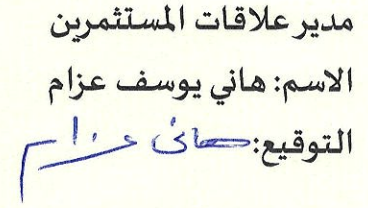 مدير علاقات المستثمرين
الاسم: هاني يوسف عزام
التوقيع: هاني عزام